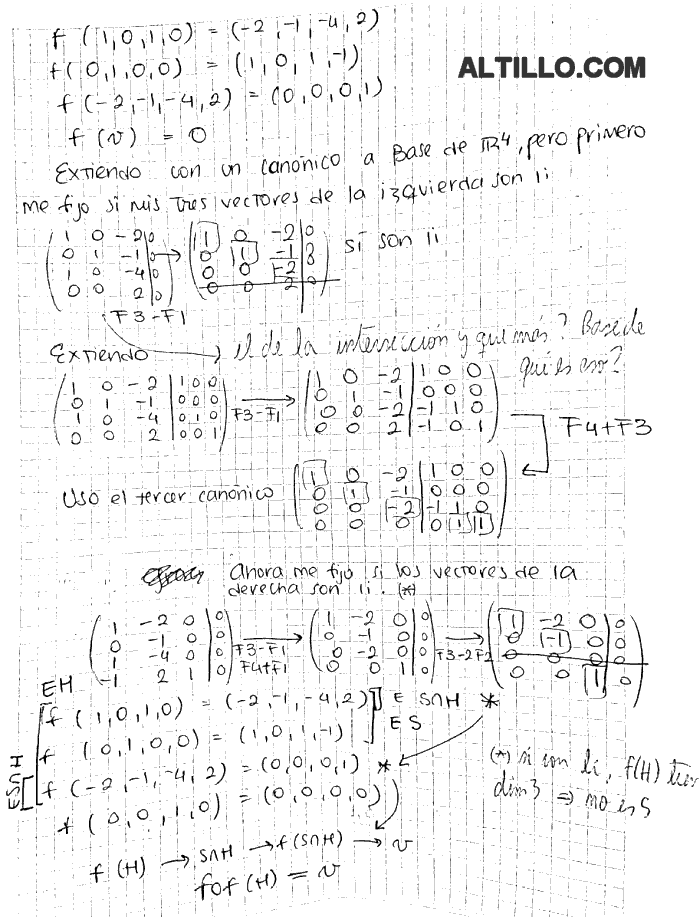 f (1,0,1,0) = (-2,-1,-4,2)
f(0,1,0,0) = (1,0,1,-1)
ALTILLO.COM
f(-2,-1,-4,2) = (0,0,0,1)
f(v) = 0
Extiendo con un canónico a Base de R4, pero primero
me fijo si mis tres vectores de la izquierda son li
( 1 0 -2 | 0 → ( 1 0 -2 | 0
0 1 -1 | 0 0 1 -1 | 0 sí son li
1 0 -4 | 0 0 0 -2 | 0
0 0 2 | 0 ) 0 0 2 | 0 )
F3-F1
Extiendo → el de la intersección y qué más? Base de
qué es eso?
( 1 0 -2 | 1 0 0 ( 1 0 -2 | 1 0 0
0 1 -1 | 0 0 0 0 1 -1 | 0 0 0
1 0 -4 | 0 1 0 F3-F1 → 0 0 -2 | -1 1 0
0 0 2 | 0 0 1 ) 0 0 2 | -1 0 1 ) F4+F3
Uso el tercer canónico ( 1 0 -2 | 1 0 0
0 1 -1 | 0 0 0
0 0 -2 | -1 1 0
0 0 0 | 0 1 1 )
Ahora me fijo si los vectores de la
derecha son li. (*)
( 1 -2 0 | 0 ( 1 -2 0 | 0 ( 1 -2 0 | 0
0 -1 0 | 0 F3-F1 → 0 -1 0 | 0 → 0 -1 0 | 0
1 -4 0 | 0 F4+F1 0 -2 0 | 0 F3-2F2 0 0 0 | 0
-1 2 1 | 0 ) 0 0 1 | 0 ) 0 0 1 | 0 )
EH
f (1,0,1,0) = (-2,-1,-4,2) E S∩H *
f (0,1,0,0) = (1,0,1,-1) ES
ES∩H
f (-2,-1,-4,2) = (0,0,0,1) *
f (0,0,1,0) = (0,0,0,0)
(*) si son li, f(H) tiene
dim 3 ⇒ no es S
f (H) → S∩H → f(S∩H) → v
fof (H) = v